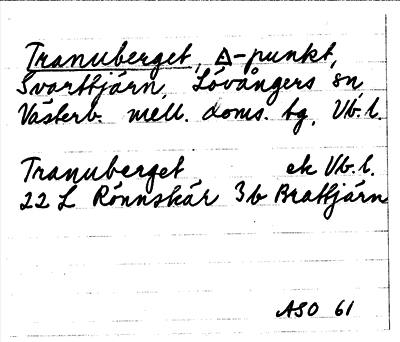 Tranuberget, △-punkt,
Svarttjärn, Lövångers sn,
Västerb. mell. doms. tg, Vb.l.
Tranuberget ek Vb.l.
22 L Rönnskär 3b Brattjärn
ASO 61